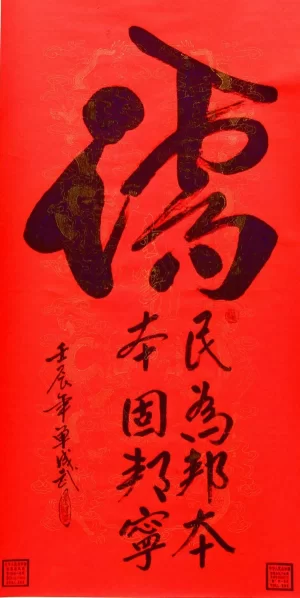 福
民為邦本
本固邦寧
壬辰年單成武